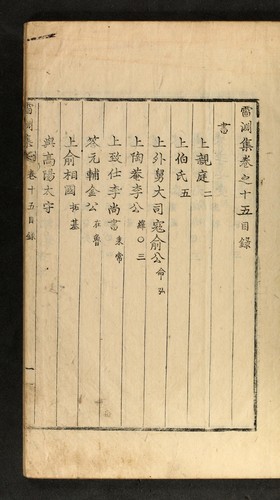 雷淵集卷之十五目錄
書
上親庭 二
上伯氏 五
上外舅大司寇俞公 命弘
上陶菴李公 縡○三
上致仕李尚書 秉常
答元輔金公 在魯
上俞相國 拓基
與高陽太守
雷淵集 卷十五目錄